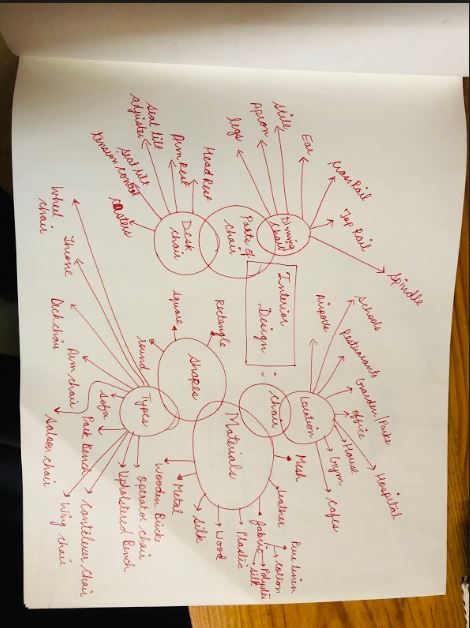 Interior
Design :
chair
Parts of
chair
Dining
chair
Spindle
Top Rail
Cross Rail
Ear
Stile
Apron
legs
Desk
chair
Head Rest
Arm Rest
Seat tilt
adjuster
Seat tilt
tension control
casters
Location
Airport
Schools
Restaurants
Garden/Parks
office
House
Hospital
Gym
Cafes
Shapes
Rectangle
Square
round
Materials
Mesh
leather
fabric
Pure linen
cotton
Polyster
silk
Plastic
Wood
Silk
Metal
Wooden Bricks
Types
Wheel
chair
Throne
Deck chair
Arm chair
Sofa
Saloon chair
Park Bench
Wing chair
Cantilever chair
Upholstered Bench
operator chair